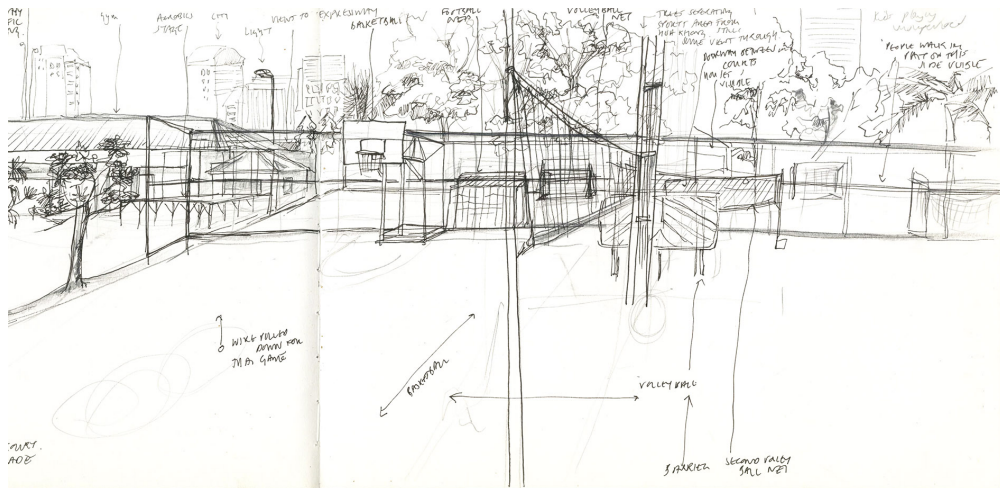 GYM
AEROBICS
STAGE
CITY
LIGHT
VIEW TO EXPRESSWAY
BASKETBALL
FOOTBALL
NETS
VOLLEYBALL
NET
TREES SEPERATING
SPORTS AREA FROM
SOME VIEW THROUGH
DOORWAY BETWEEN
COURTS
VISIBLE
KIDS PLAYING
PEOPLE WALK IN
PATH ON THIS
SIDE VISIBLE
WIRE PULLED
DOWN FOR
GAME
BASKETBALL
VOLLEYBALL
BARRIER
SECOND VOLLEY
BALL NET